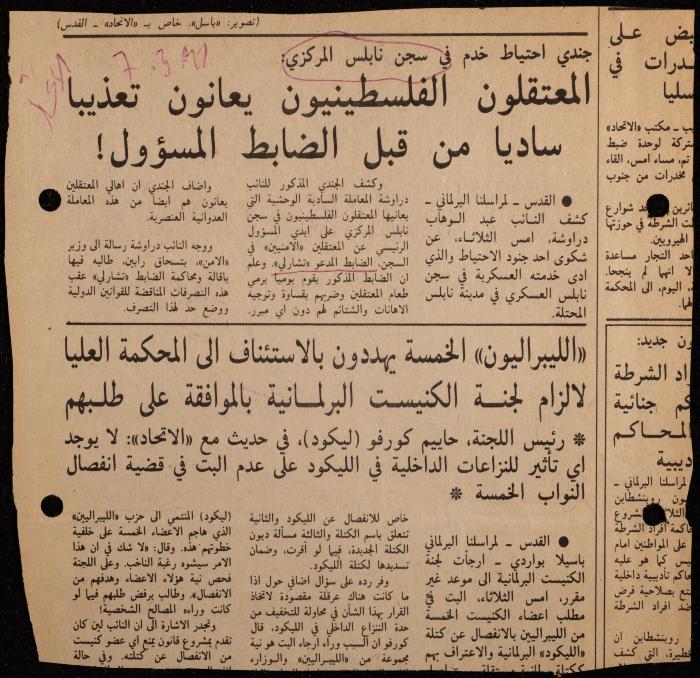 (تصوير: «باسل». خاص بـ «الاتحاد» ـ القدس)
جندي احتياط خدم في سجن نابلس المركزي:
المعتقلون الفلسطينيون يعانون تعذيبا
ساديا من قبل الضابط المسؤول!
● القدس ـ لمراسلنا البرلماني ـ
كشف النائب عبد الوهاب
دراوشة، امس الثلاثاء، عن
شكوى احد جنود الاحتياط والذي
ادى خدمته العسكرية في سجن
نابلس العسكري في مدينة نابلس
المحتلة.
وكشف الجندي المذكور للنائب
دراوشة المعاملة السادية الوحشية التي
يعانيها المعتقلون الفلسطينيون في سجن
نابلس المركزي على ايدي المسؤول
الرئيسي عن المعتقلين «الامنيين» في
السجن، الضابط المدعو «تشارلي». وعلم
ان الضابط المذكور يقوم يوميا برمي
طعام المعتقلين وضربهم بقساوة وتوجيه
الاهانات والشتائم لهم دون اي مبرر.
واضاف الجندي ان اهالي المعتقلين
يعانون هم ايضا من هذه المعاملة
العدوانية العنصرية.
ووجه النائب دراوشة رسالة الى وزير
«الامن»، يتسحاق رابين، طالبه فيها
باقالة ومحاكمة الضابط «تشارلي» عقب
هذه التصرفات المناقضة للقوانين الدولية
ووضع حد لهذا التصرف.
«الليبراليون» الخمسة يهددون بالاستئناف الى المحكمة العليا
لالزام لجنة الكنيست البرلمانية بالموافقة على طلبهم
* رئيس اللجنة، حاييم كورفو (ليكود)، في حديث مع «الاتحاد»: لا يوجد
اي تأثير للنزاعات الداخلية في الليكود على عدم البت في قضية انفصال
النواب الخمسة *
● القدس ـ لمراسلنا البرلماني
باسيلا بواردي ـ ارجأت لجنة
الكنيست البرلمانية الى موعد غير
مقرر، امس الثلاثاء، البت في
مطلب اعضاء الكنيست الخمسة
من الليبراليين بالانفصال عن كتلة
«الليكود» البرلمانية والاعتراف بهم
خاص للانفصال عن الليكود والثانية
تتعلق باسم الكتلة والثالثة مسألة ديون
الكتلة الجديدة، فيما لو اقرت، وضمان
تسديدها لكتلة الليكود.
وفر رده على سؤال اضافي حول اذا
ما كانت هناك عرقلة مقصودة لاتخاذ
القرار بهذا الشأن في محاولة للتخفيف من
حدة النتزاع الداخلي في الليكود، قال
كورفو ان السبب وراء ارجاء البت هو نية
مجموعة من «الليبراليين» والوزراء
(ليكود) المنتمي الى حزب «الليبراليين»
الذي هاجم الاعضاء الخمسة على خلفية
خطوتهم هذه. وقال: «لا شك في ان هذا
الامر سيشوه رغبة الناخب. وعلى اللجنة
فحص نية هؤلاء الاعضاء وهدفهم من
الانفصال». وطالب برفض طلبهم فيما لو
كانت وراءه المصالح الشخصية!
وتجدر الاشارة الى ان النائب لين كان
تقدم بمشروع قانون يمنع اي عضو كنيست
من الانفصال عن كتلته، وفي حالة
ـدرات في
سليا
ب ـ مكتب «الاتحاد»
تركة لوحدة ضبط
تم، مساء امس، القاء
مخدرات من جنوب
شوارع
ت الشرطة في حوزتها
الهيرويين.
احد التجار مساعدة
لا انهما لم ينجحا.
، اليوم، الى المحكمة
ون جديد:
راد الشرطة
كم جنائية
لمحاكم
ديبية
لمراسلنا البرلماني ـ
ون روبنشطاين
حاكمة افراد الشرطة
على المواطنين امام
يس كما هو عليه
كم تأديبية داخلية
تع بصلاحية فرض
ضد افراد الشرطة
روبنشطاين ان
خطيرة، التي كشف